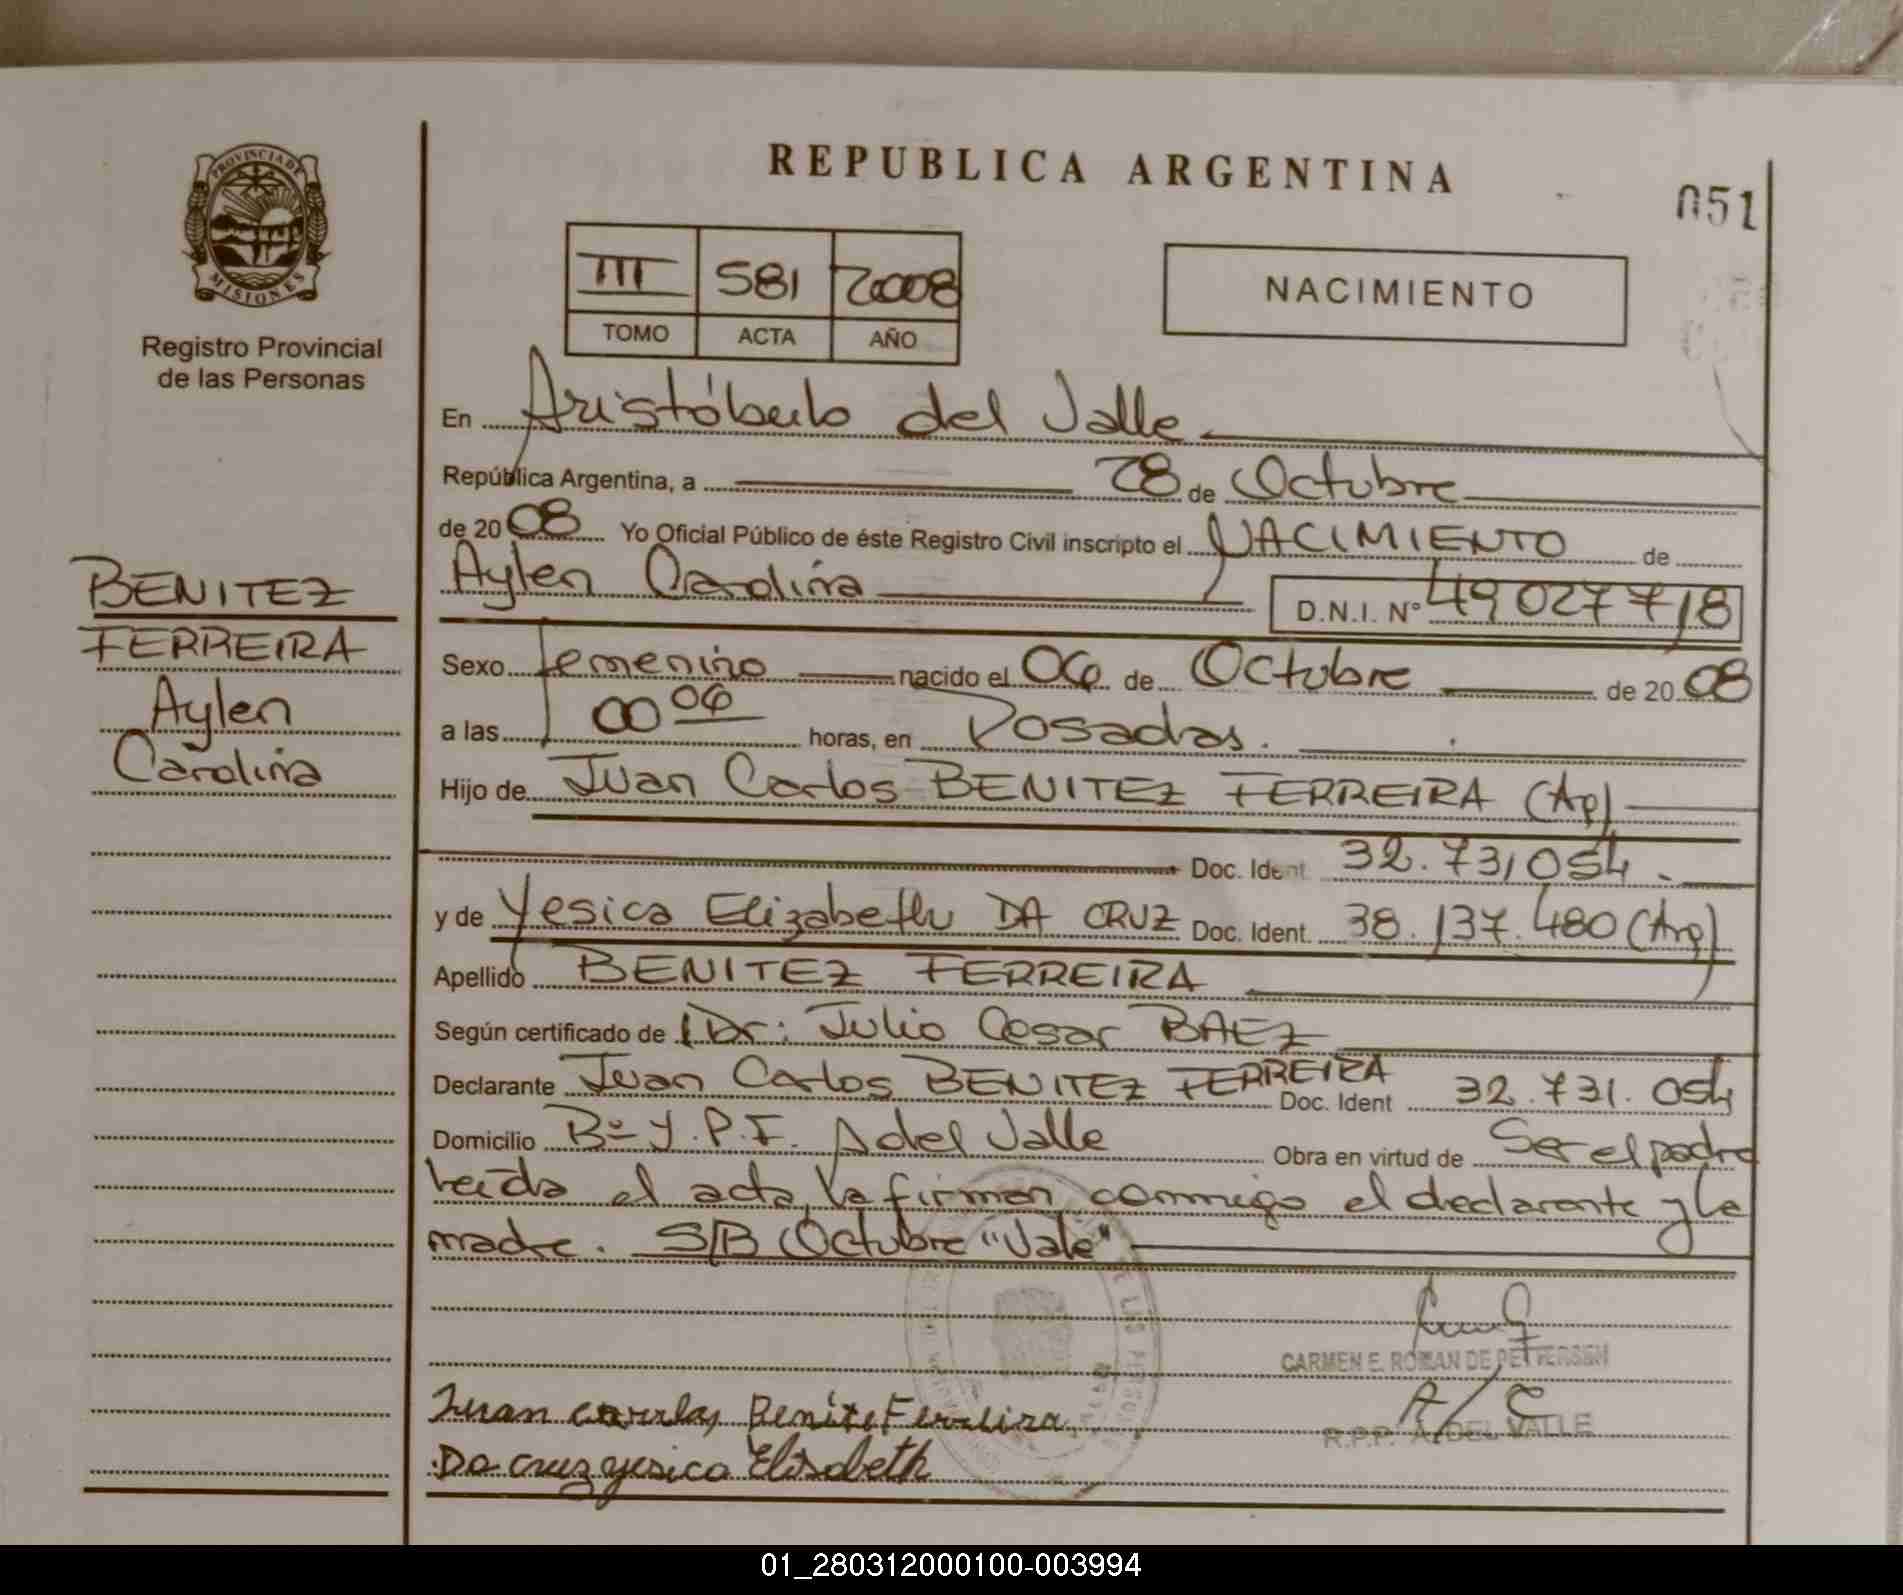 REPUBLICA ARGENTINA
051
PROVINCIA DE
MISIONES
Registro Provincial
de las Personas
III 581 2008
TOMO ACTA AÑO
NACIMIENTO
En Aristóbulo del Valle
República Argentina, a 28 de Octubre
de 2008 Yo Oficial Público de éste Registro Civil inscripto el NACIMIENTO de
Aylen Carolina D.N.I. Nº 49027718
BENITEZ
FERREIRA
Aylen
Carolina
Sexo femenino nacido el 06 de Octubre de 2008
a las 00 06 horas, en Posadas.
Hijo de Juan Carlos BENITEZ FERREIRA (Ap)
Doc. Ident 32.731054.
y de Yesica Elizabeth DA CRUZ Doc. Ident. 38.137.480 (Arg)
Apellido BENITEZ FERREIRA
Según certificado de Dr: Julio Cesar BAEZ
Declarante Juan Carlos BENITEZ FERREIRA Doc. Ident 32.731.054
Domicilio Bº Y.P.F. A del Valle Obra en virtud de Ser el padre
leída el acta, la firman conmigo el declarante y la
madre. S/B Octubre "Vale"
CARMEN E. ROMAN DE PETTERSEN
A/C
R.P.P. A. DEL VALLE
Juan carlos Benite Ferreira
Da cruz yesica Elisabeth
01_280312000100-003994